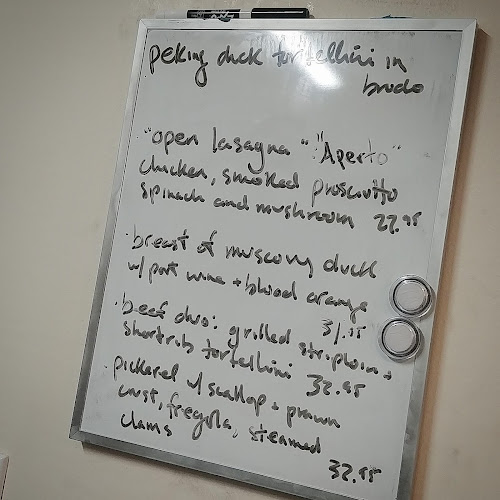 peking duck tortellini in
brodo
"open lasagna" "Aperto"
chicken, smoked prosciutto
spinach and mushroom 27.95
· breast of muscovy duck
w/ port wine + blood orange
31.95
· beef duo: grilled striploin +
shortrib tortellini 32.95
· pickerel w/ scallop + prawn
crust, fregola, steamed
clams
32.95